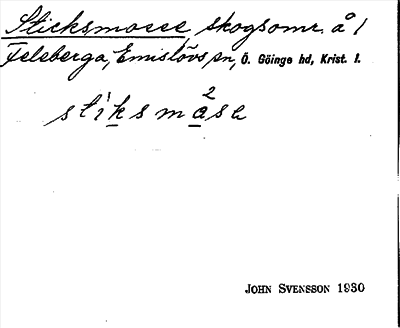 Sticksmosse, skogsomr. å /
Feleberga, Emislövs sn, Ö. Göinge hd, Krist. l.
sti1k s m2åsa
JOHN SVENSSON 1930